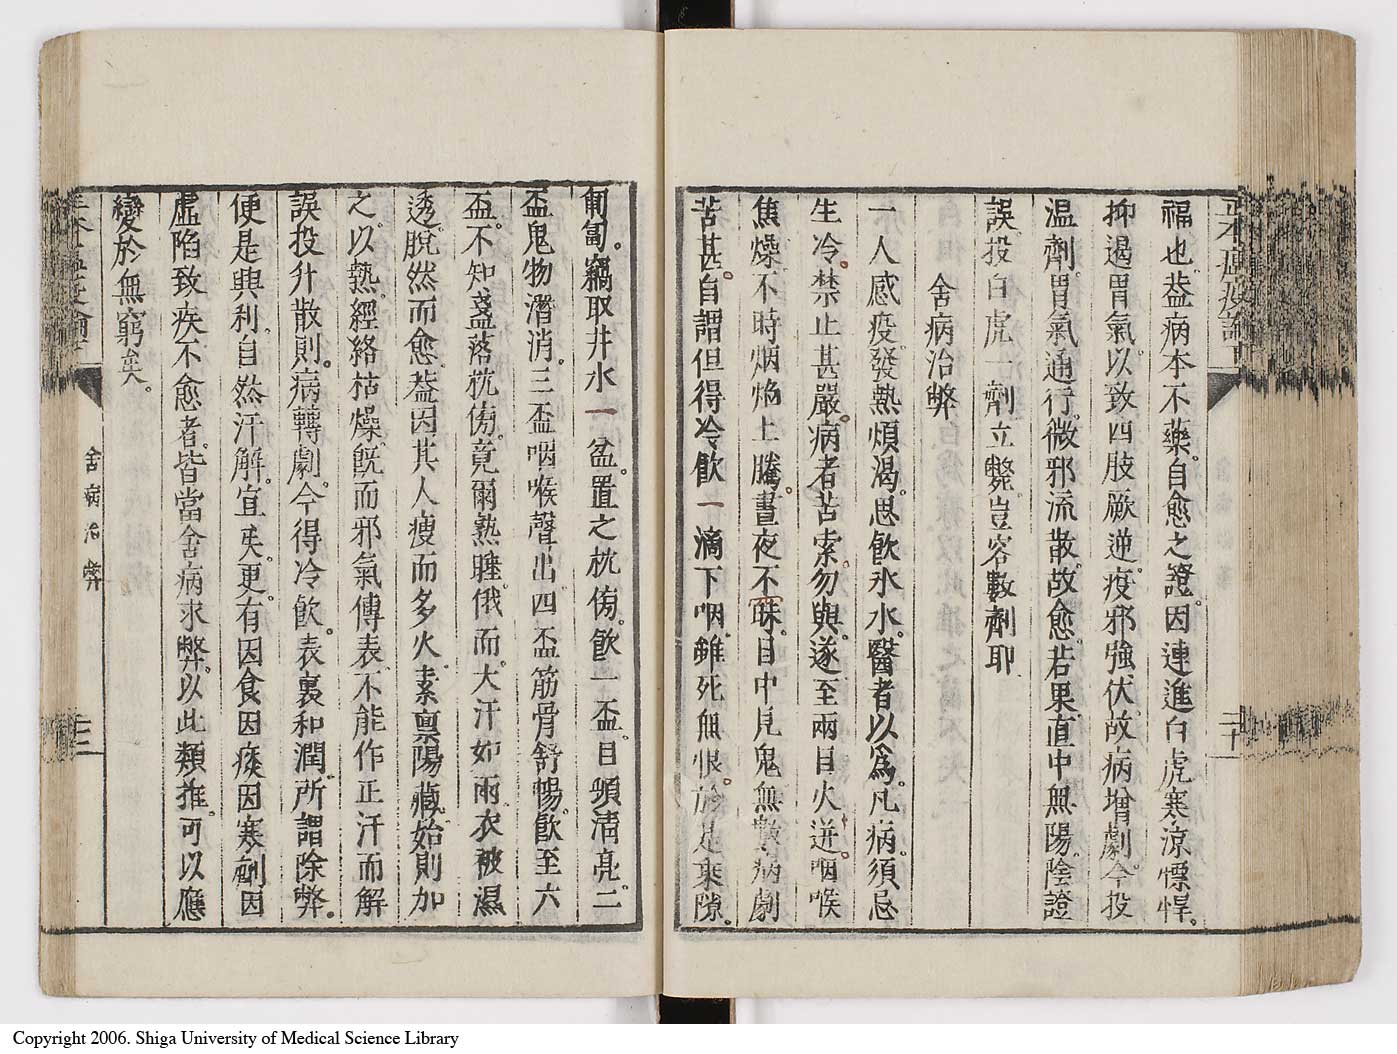 正本瘟疫論下
二十
福也。葢病本不藥。自愈之證。因連進白虎寒涼慓悍。
抑遏胃氣。以致四肢厥逆。疫邪強伏。故病增劇。今投
温劑。胃氣通行。微邪流散。故愈。若果直中無陽陰證
誤投白虎一劑立斃。豈容數劑耶
舍病治弊
一人感疫。發熱煩渴。思飮氷水。醫者以爲。凡病須忌
生冷。禁止甚嚴。病者苦索。勿與。遂至兩目火迸。咽喉
焦燥。不時烟焰上騰。晝夜不寐。目中見鬼無數。病劇
苦甚。自謂但得冷飮一滴下咽。雖死無恨。於是乘隙。
匍匐。竊取井水一盆。置之枕傍。飮一盃。目頓清亮。二
盃鬼物潛消。三盃咽喉聲出。四盃筋骨舒暢。飮至六
盃。不知盞落枕傍。竟爾熟睡。俄而。大汗如雨。衣被濕
透。脫然而愈。葢因其人瘦而多火。素禀陽藏。始則加
之。以熱。經絡枯燥。旣而邪氣傳表。不能作正汗而解
誤投升散則。病轉劇。今得冷飮。表裏和潤。所謂除弊。
便是興利。自然汗解。宜矣。更。有因食因痰因寒劑因
虛陷致疾不愈者。皆當舍病求弊。以此類推。可以應
變於無窮矣。
舍病治弊